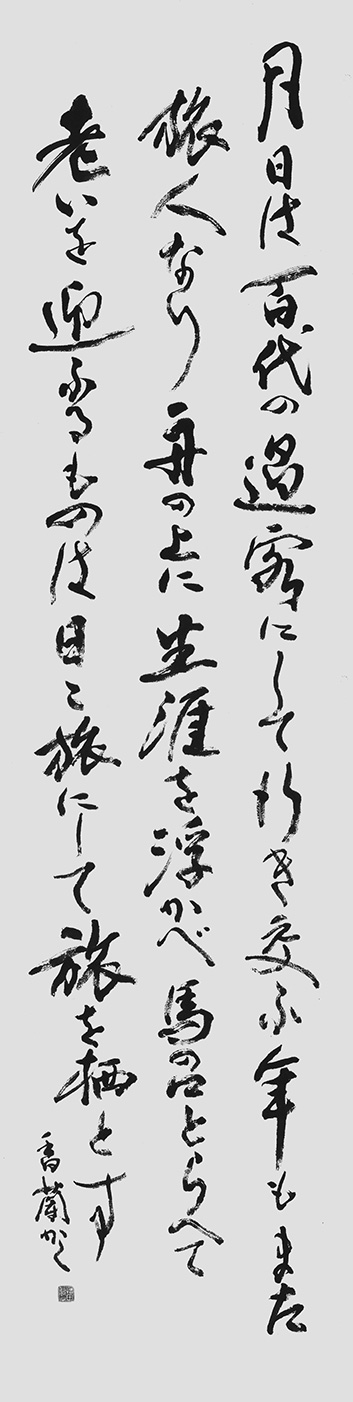 月日は百代の過客にして行き交ふ年もまた
旅人なり舟の上に生涯を浮かべ馬の口とらへて
老いを迎ふるものは日々旅にして旅を栖とす
香蘭かく